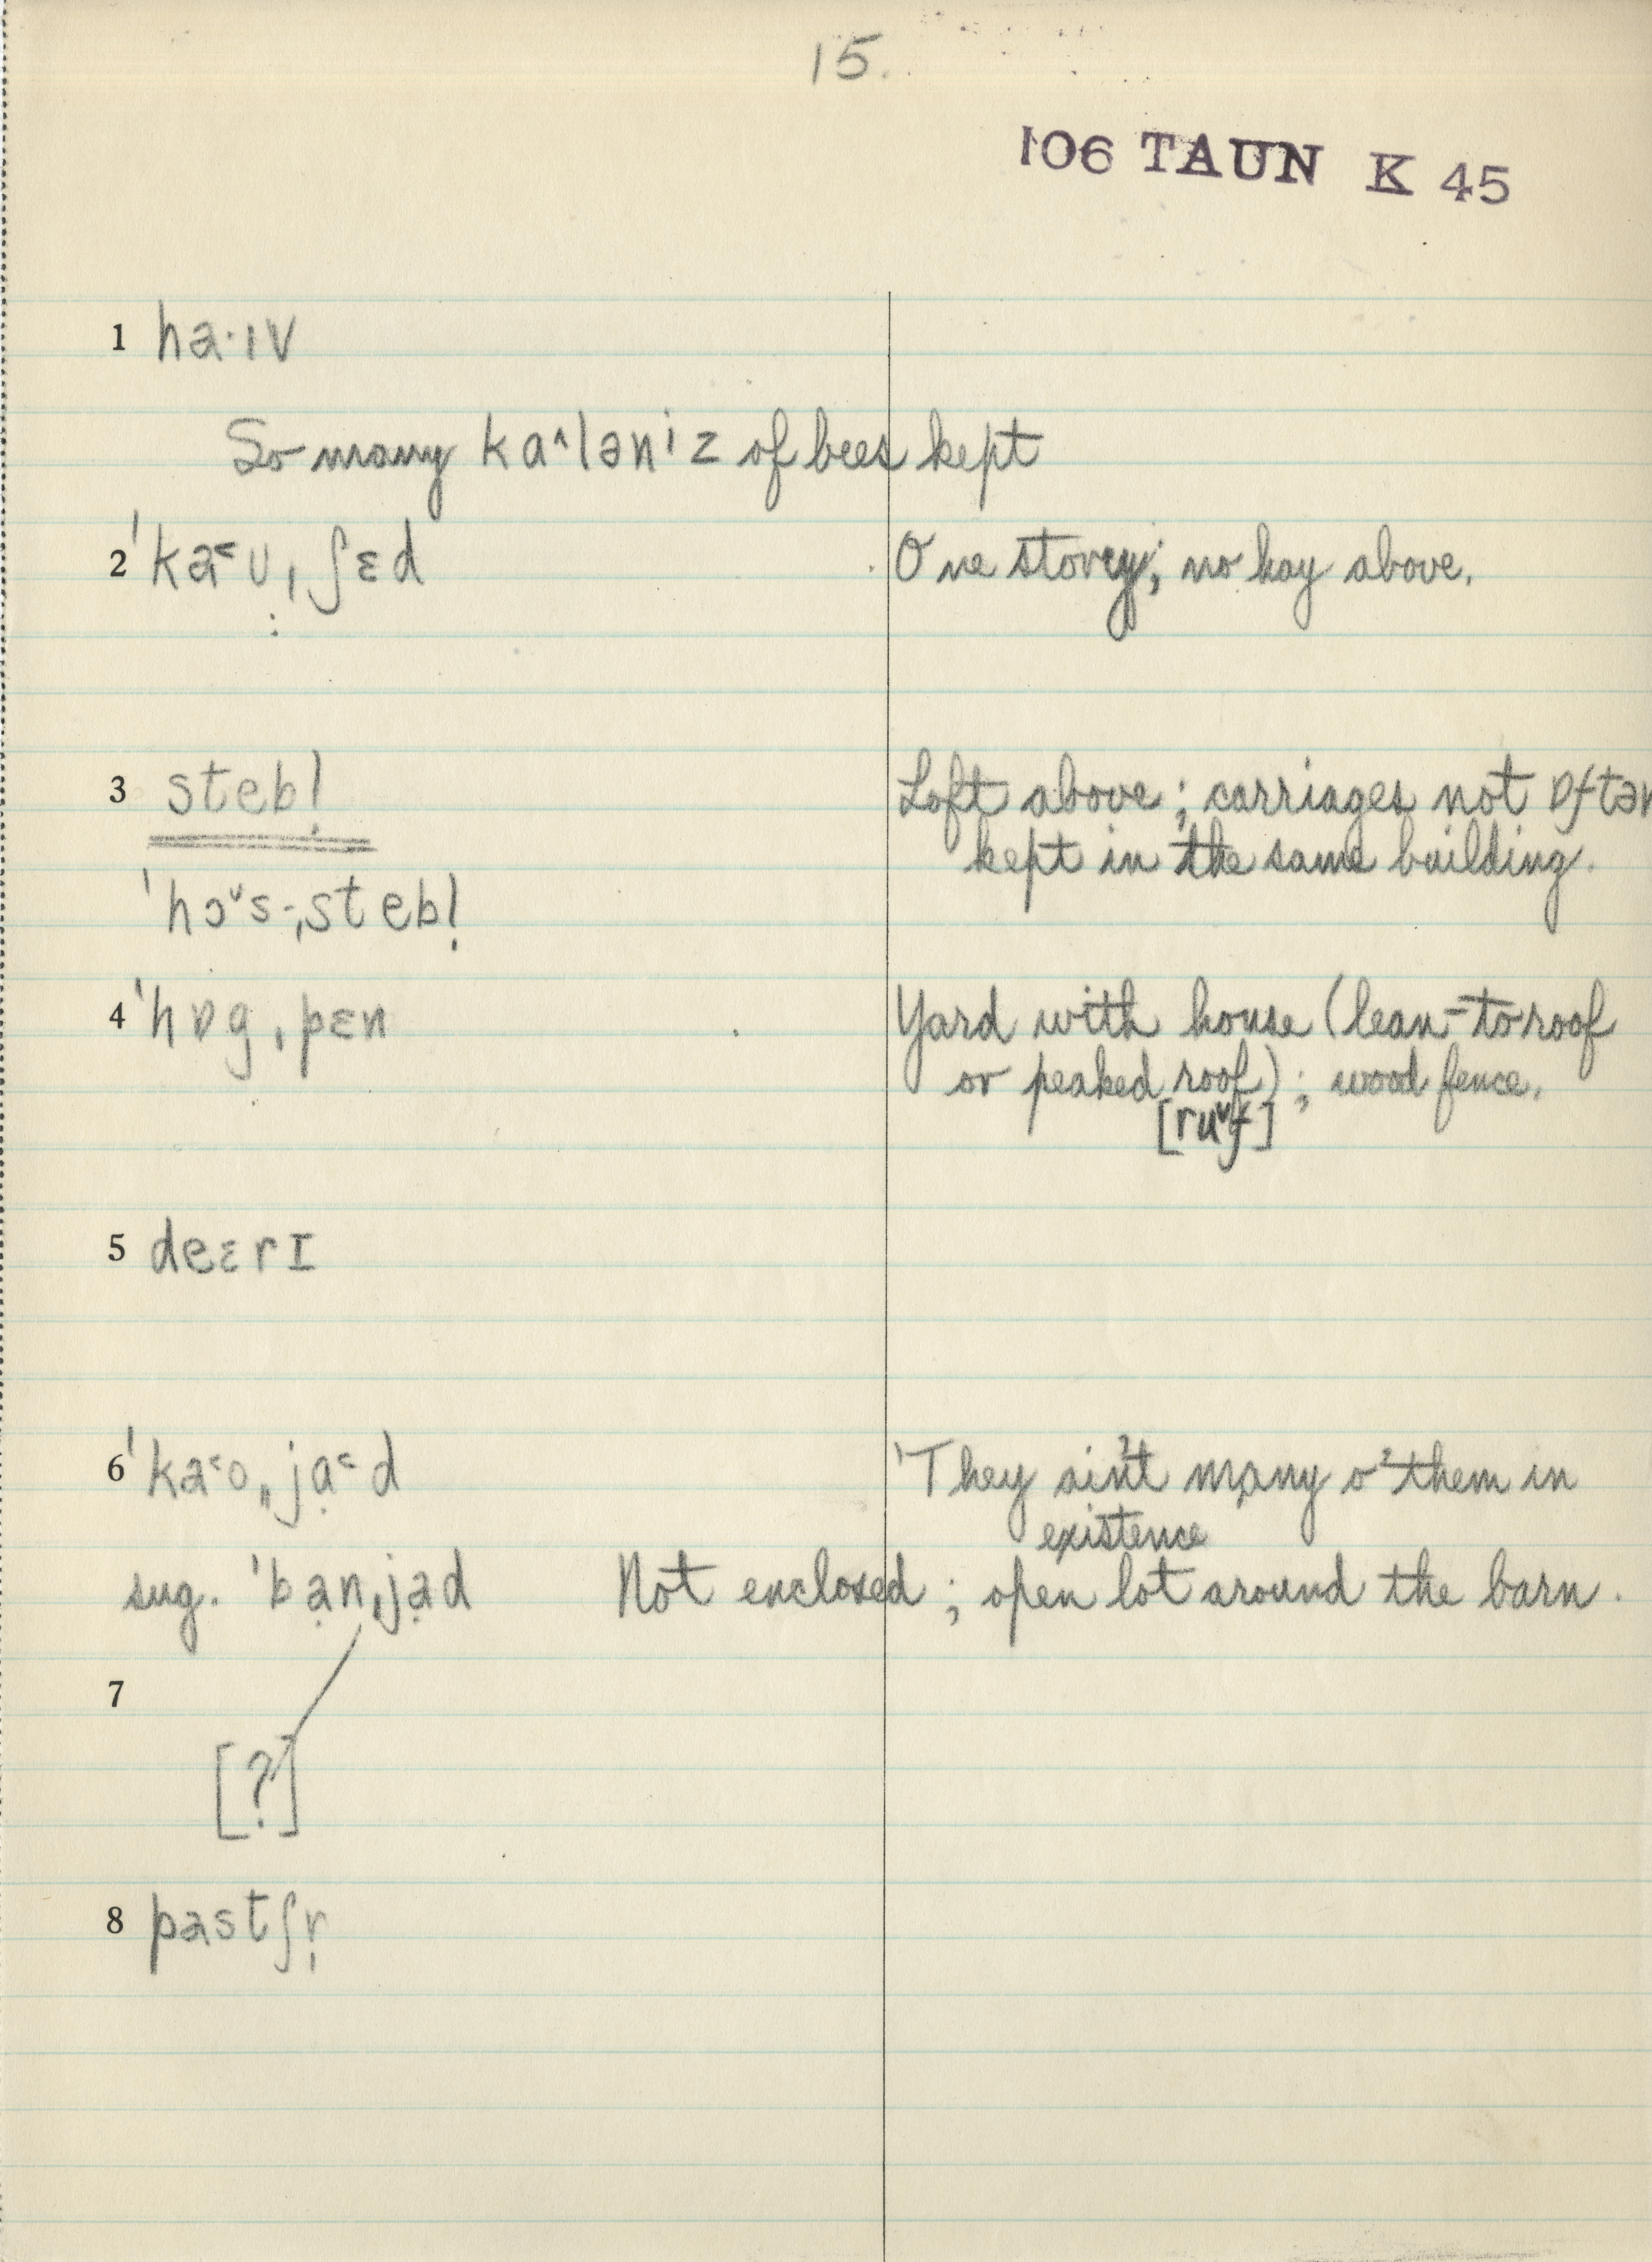 15.
106 TAUN K 45
1 ha·ıv
So many ka˄lənⁱz of bees kept
2 ˈka˂ʊ̤ˌʃɛd One storey; no hay above.
3 stebl̩ Loft above; carriages not ɒftən
kept in the same building.
ˈhɔ˅s-ˌstebl̩
4 ˈhɒgˌpɛn Yard with house (lean-to roof
or peaked roof); wood fence.
[ru˅f]
5 deɛrɪ
6 ˈka˂oˌˌja̤˂d 'They ain't many o' them in
existence
sug. ˈba̤nˌja̤d Not enclosed; open lot around the barn.
7
[?]
8 pastʃr̩